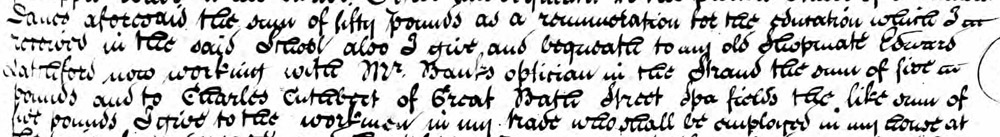 Lanes aforesaid the sum of fifty pounds as a remuneration for the education which I
received in the said School also I give and bequeath to my old Shopmate Edward
now working with Mr. Banks optician in the Strand the sum of five
pounds and to Charles Cuthbert of Great Bath Street Spa fields the like sum of
five pounds I give to the workmen in my trade who shall be employed in my house at